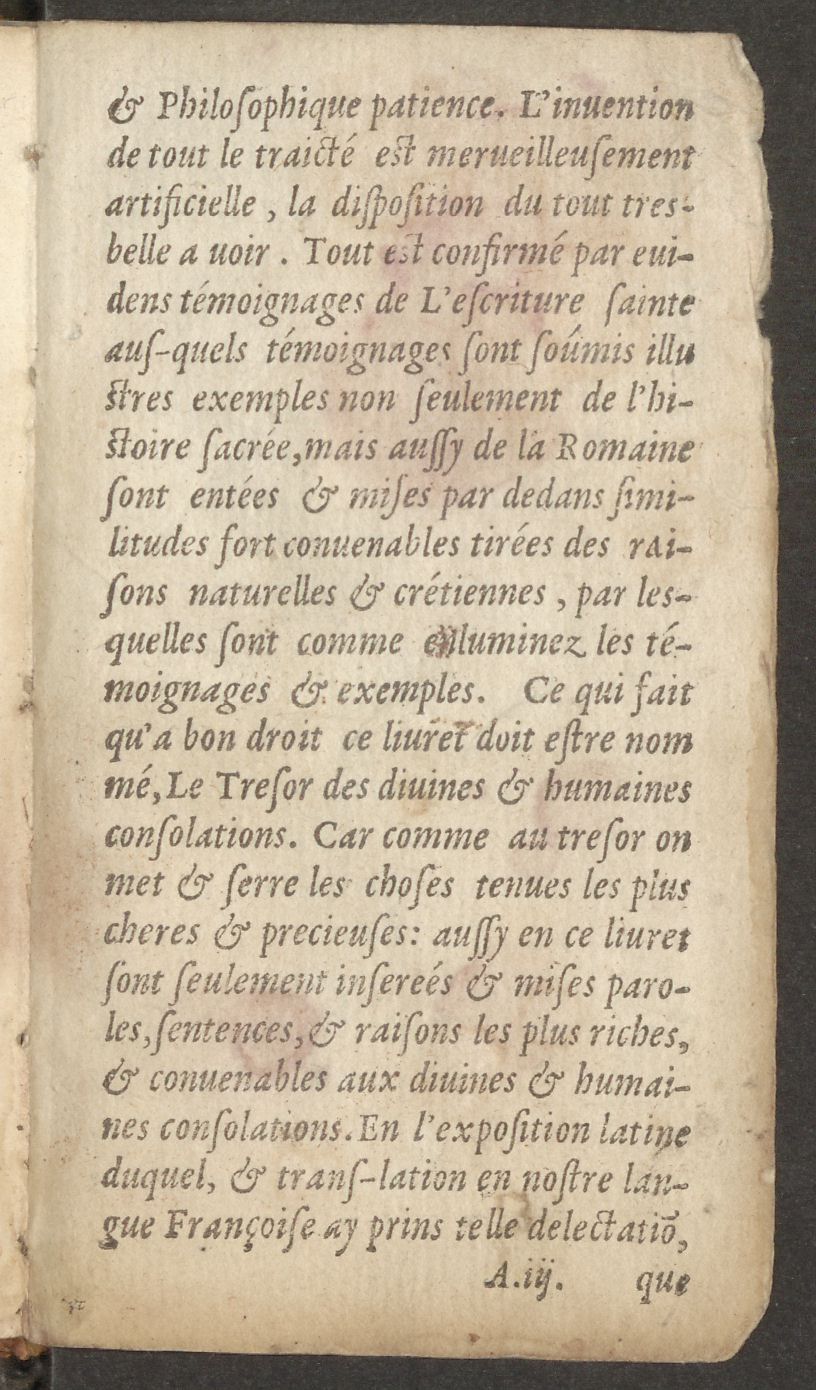 & Philoſophique patience. L'inuention
de tout le traicté est merueilleuſement
artificielle , la diſpoſition du tout tres-
belle a uoir . Tout est confirmé par eui-
dens témoignages de L'eſcriture ſainte
auſ-quels témoignages ſont ſoúmis illu
ſtres exemples non ſeulement de l'hi-
ſtoire ſacrée,mais auſſy de la Romaine
ſont entées & miſes par dedans ſimi-
litudes fort conuenables tirées des rai-
ſons naturelles & crétiennes , par les-
quelles ſont comme enluminez les té-
moignages & exemples. Ce qui fait
qu'a bon droit ce liuret doit eſtre nom
mé,Le Treſor des diuines & humaines
conſolations. Car comme au treſor on
met & ſerre les choſes tenues les plus
cheres & precieuſes: auſſy en ce liuret
ſont ſeulement inſereés & miſes paro-
les,ſentences,& raiſons les plus riches,
& conuenables aux diuines & humai-
nes conſolations.En l'expoſition latine
duquel, & tranſ-lation en noſtre lan-
gue Françoiſe ay prins telle delectatiõ,
A.iij. que